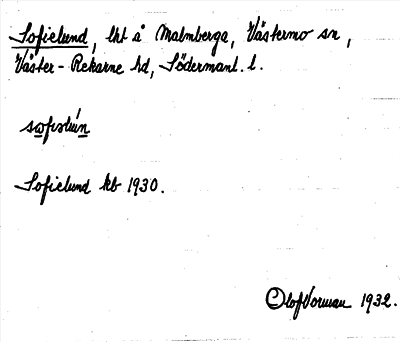 Sofielund, lht å Malmberga, Västermo sn,
Väster-Rekarne hd, Södermanl. l.
Sofielund kb 1930.
Olof Vorman 1932.